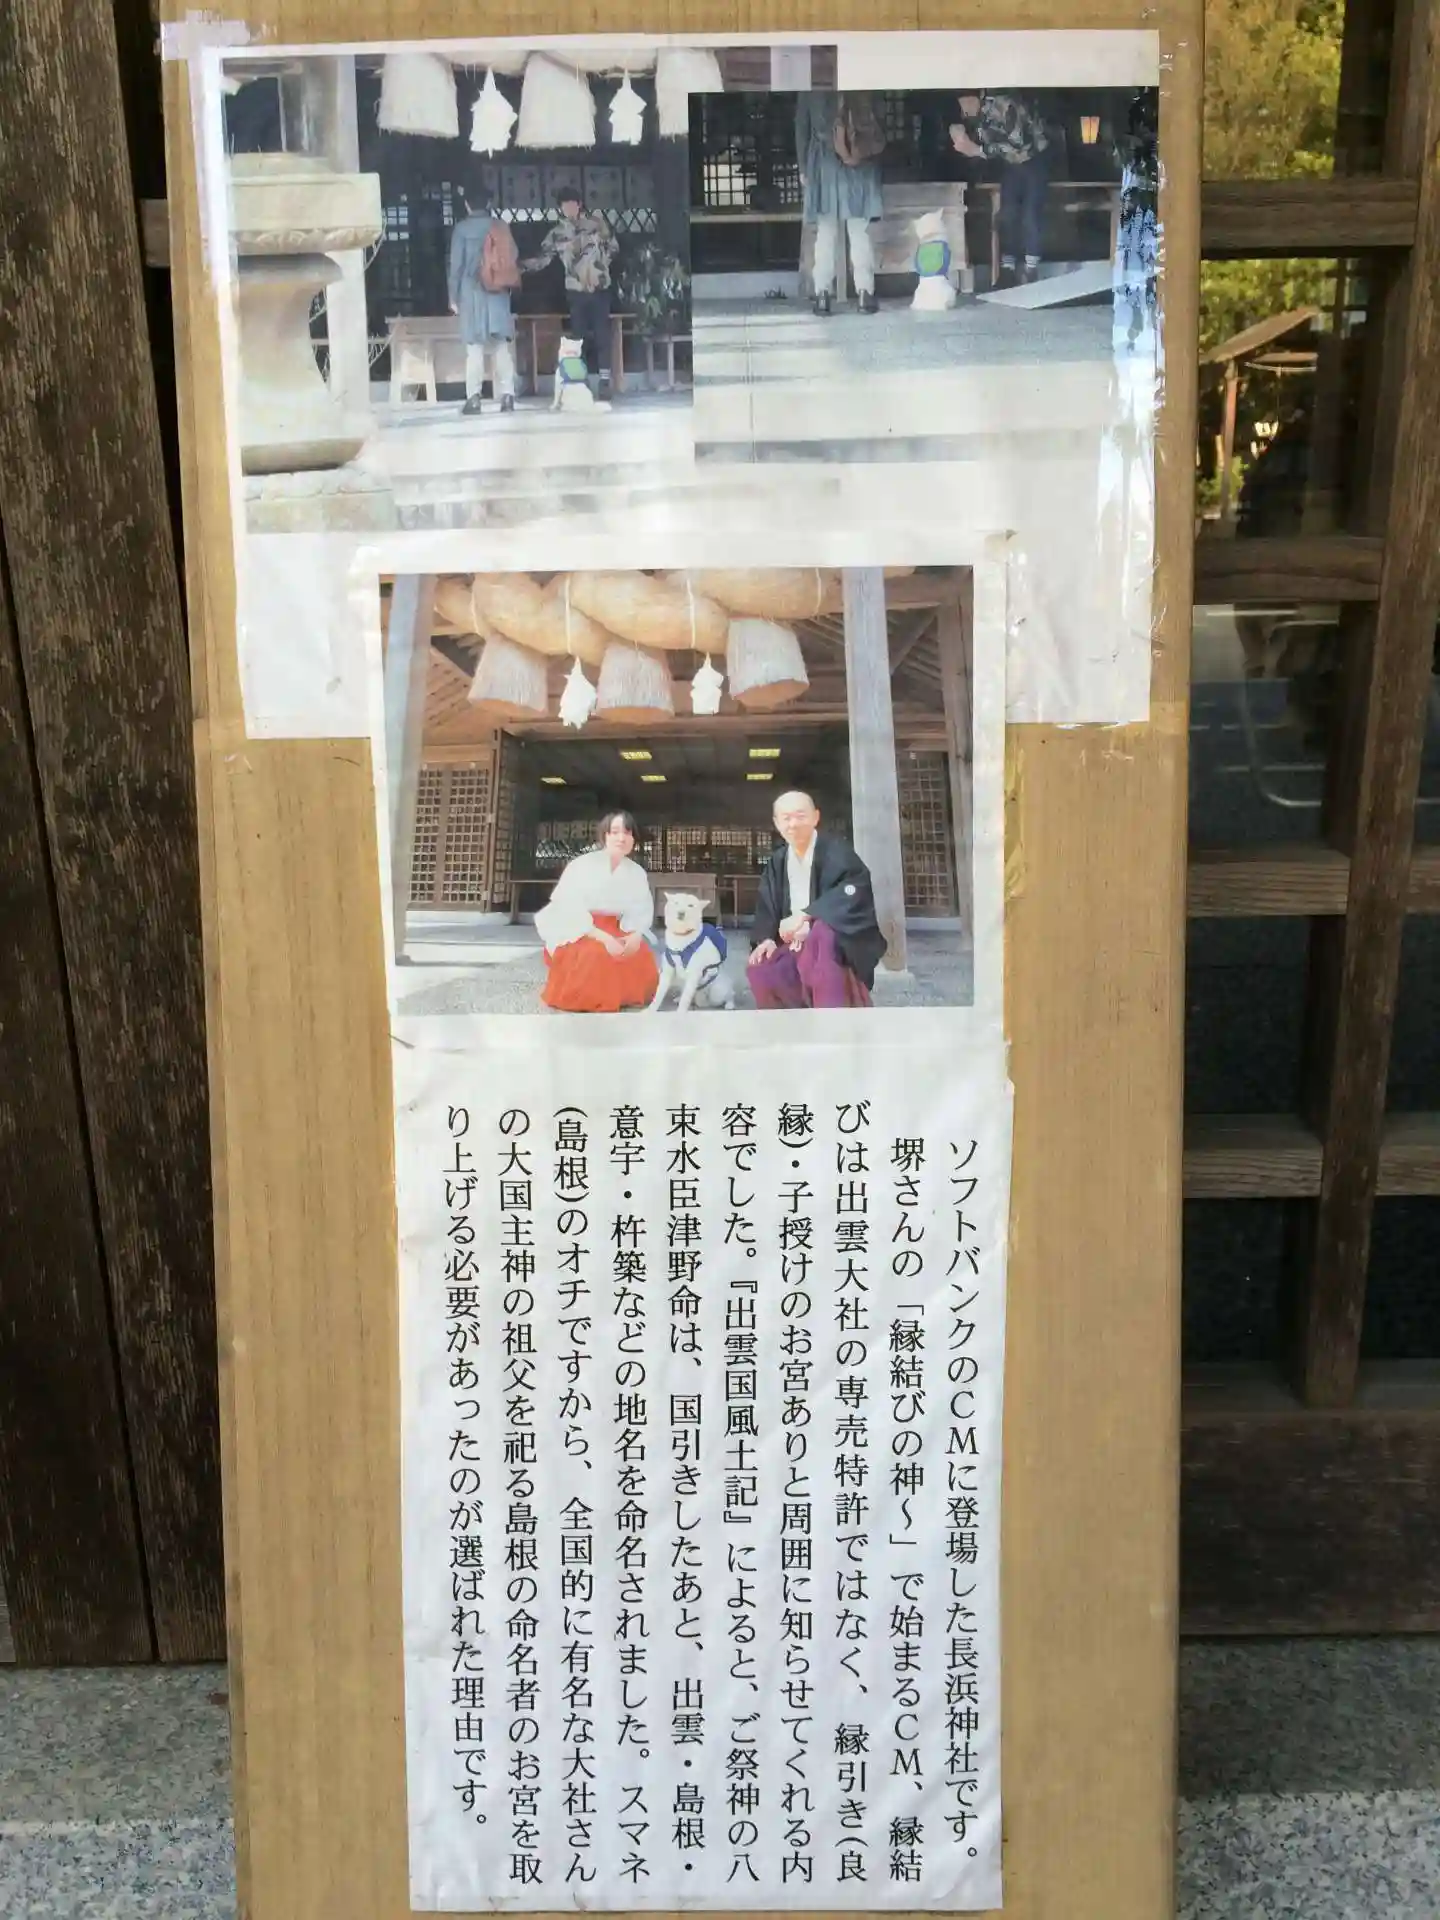 ソフトバンクのCMに登場した長浜神社です。
堺さんの「縁結びの神～」で始まるCM、縁結
びは出雲大社の専売特許ではなく、縁引き(良
縁)・子授けのお宮ありと周囲に知らせてくれる内
容でした。『出雲国風土記』によると、ご祭神の八
束水臣津野命は、国引きしたあと、出雲・島根・
意宇・杵築などの地名を命名されました。スマネ
(島根)のオチですから、全国的に有名な大社さん
の大国主神の祖父を祀る島根の命名者のお宮を取
り上げる必要があったのが選ばれた理由です。